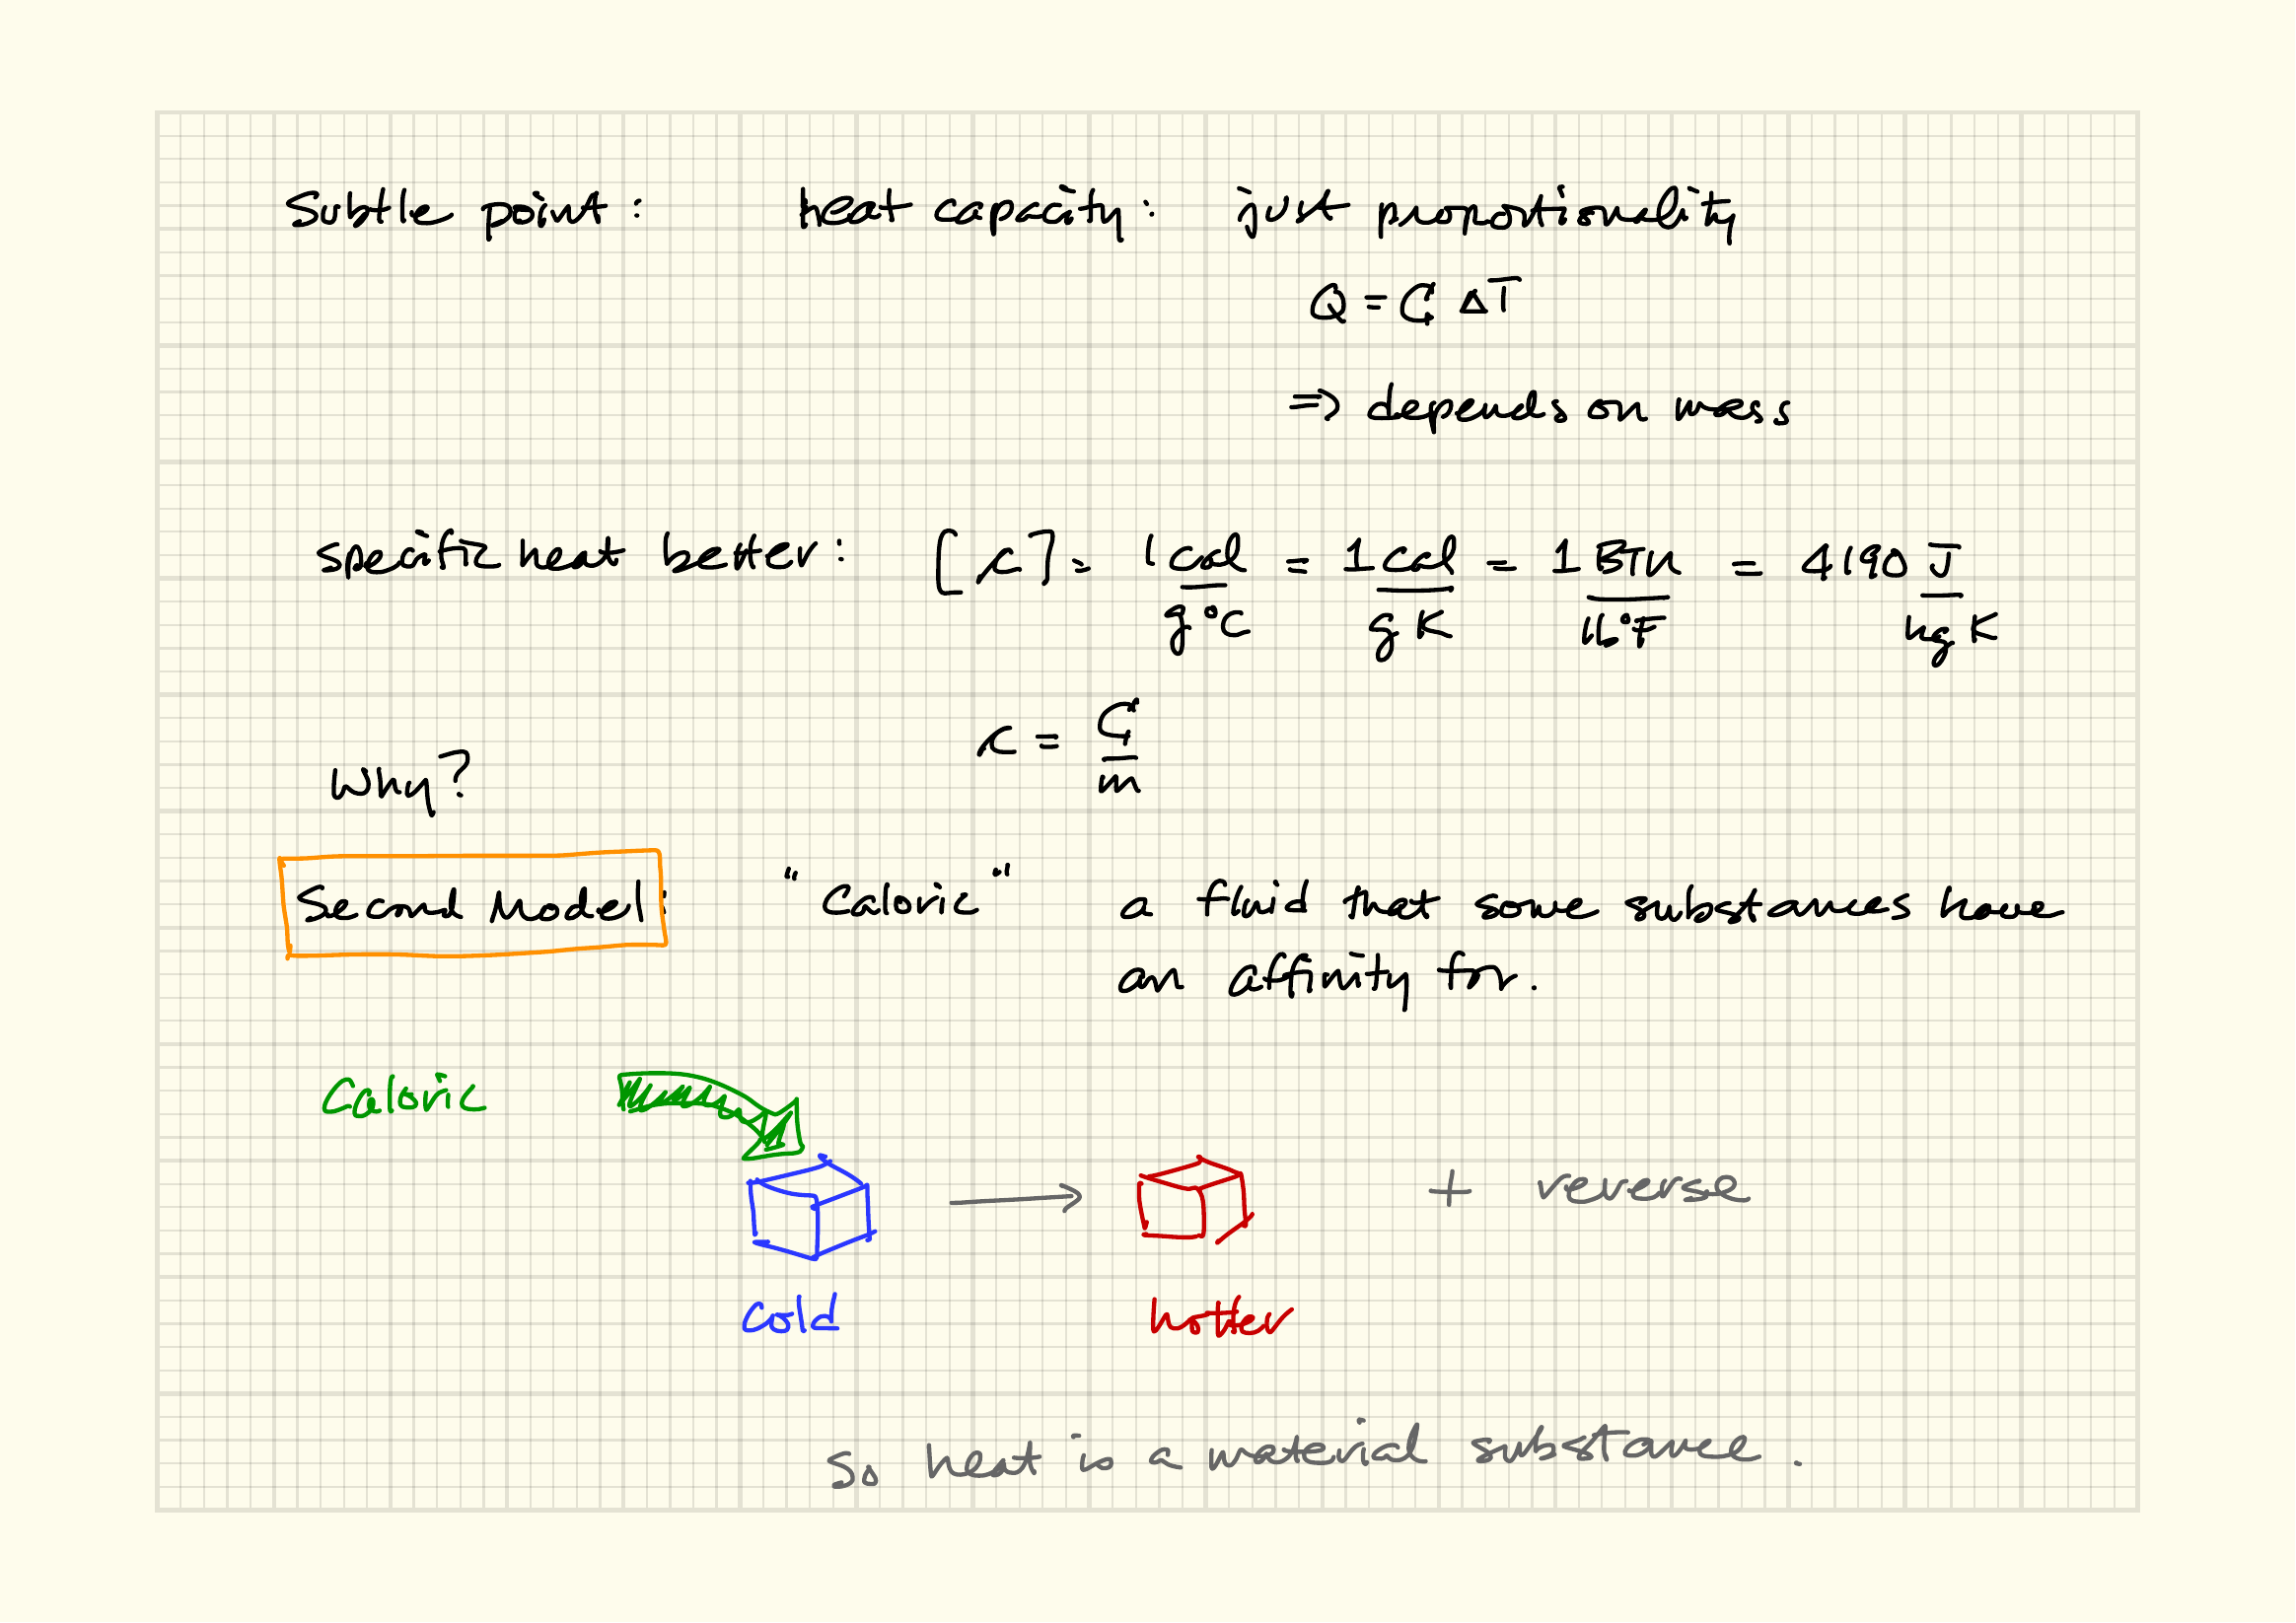 Subtle point: heat capacity: just proportionality
Q = C ΔT
⇒ depends on mass
specific heat better: [c] = 1 cal/g°C = 1 cal/g K = 1 BTU/lb°F = 4190 J/kg K
c = C/m
Why?
Second Model: "Caloric" a fluid that some substances have
an affinity for.
Caloric
+ reverse
cold hotter
So heat is a material substance.